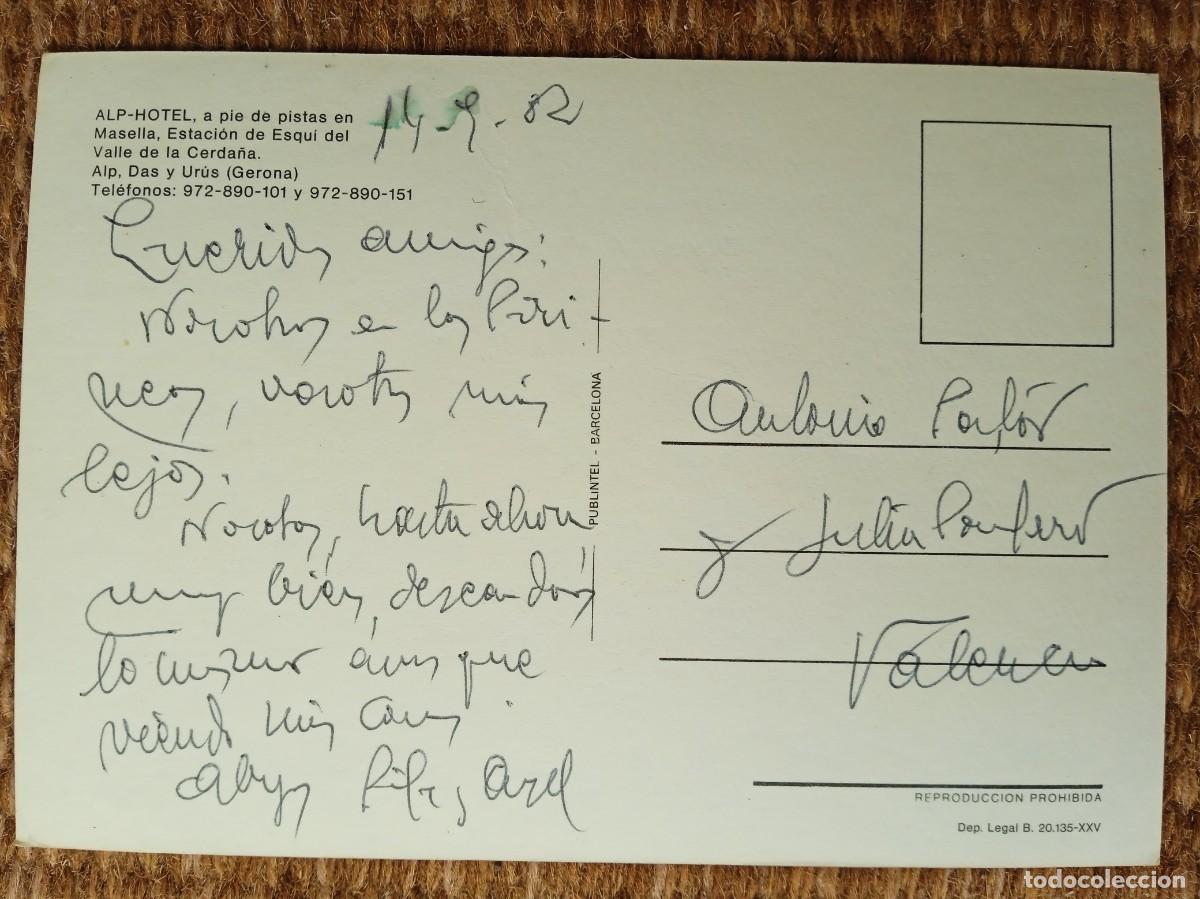 ALP-HOTEL, a pie de pistas en
Masella, Estación de Esquí del
Valle de la Cerdaña.
Alp, Das y Urús (Gerona)
Teléfonos: 972-890-101 y 972-890-151
14-9-82
Queridos amigos:
Nosotros en los Piri-
neos, vosotros más
lejos.
Nosotos, hasta ahora
muy bien, descando
lo mismo
viendo más
Pili y
PUBLINTEL - BARCELONA
Antonio Pastor
y Julia
Valencia
REPRODUCCION PROHIBIDA
Dep. Legal B. 20.135-XXV
todocoleccion